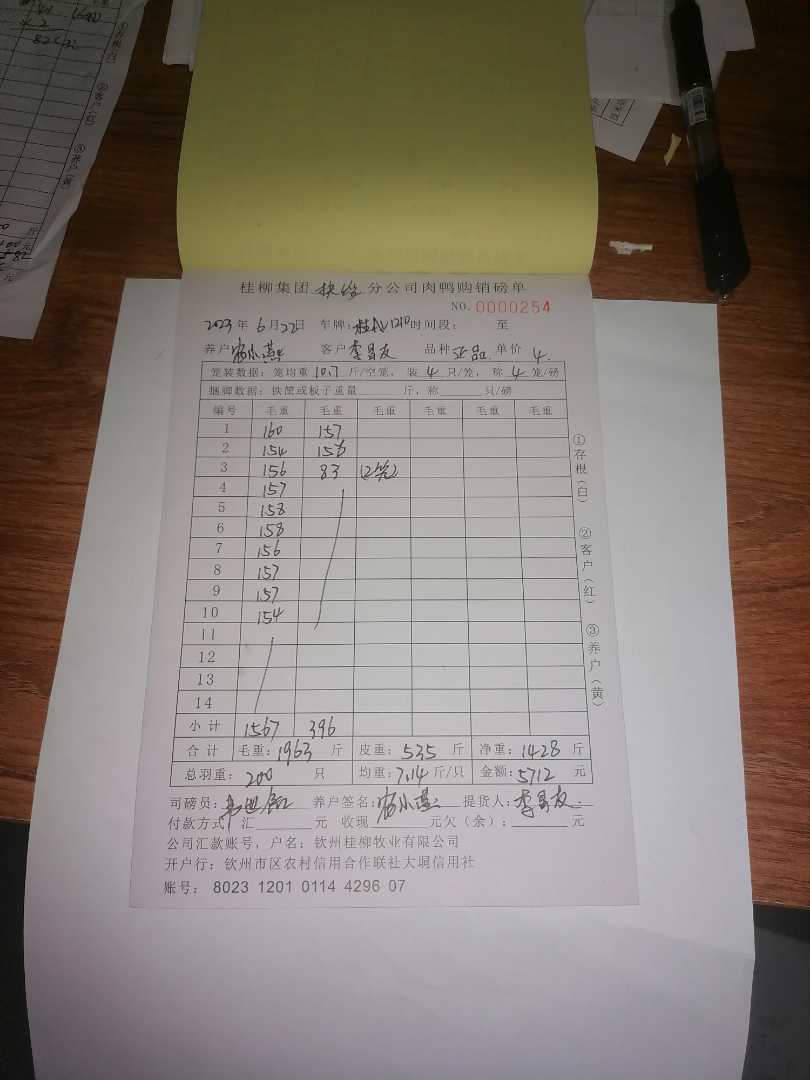 桂柳集团 分公司肉鸭购销磅单
NO.0000254
2023年6月22日 车牌: 1210 时间段: 至
养户 小燕 客户 李昌友 品种 正品 单价 4.
笼装数据: 笼均重 10.7 斤/空笼, 装 4 只/笼, 称 4 笼/磅
捆脚数据: 铁筐或板子重量 斤, 称 只/磅
编号 毛重 毛重 毛重 毛重 毛重 毛重
1 160 157
2 154 156
3 156 83 (2笼)
4 157
5 158
6 158
7 156
8 157
9 157
10 154
11
12
13
14
小计 1567 396
合计 毛重: 1963 斤 皮重: 535 斤 净重: 1428 斤
总羽重: 200 只 均重: 7.14 斤/只 金额: 5712 元
司磅员: 养户签名: 小燕 提货人: 李昌友
付款方式 汇 元 收现 元欠(余): 元
公司汇款账号, 户名: 钦州桂柳牧业有限公司
开户行: 钦州市区农村信用合作联社大垌信用社
账号: 8023 1201 0114 4296 07
①存根(白)
②客户(红)
③养户(黄)